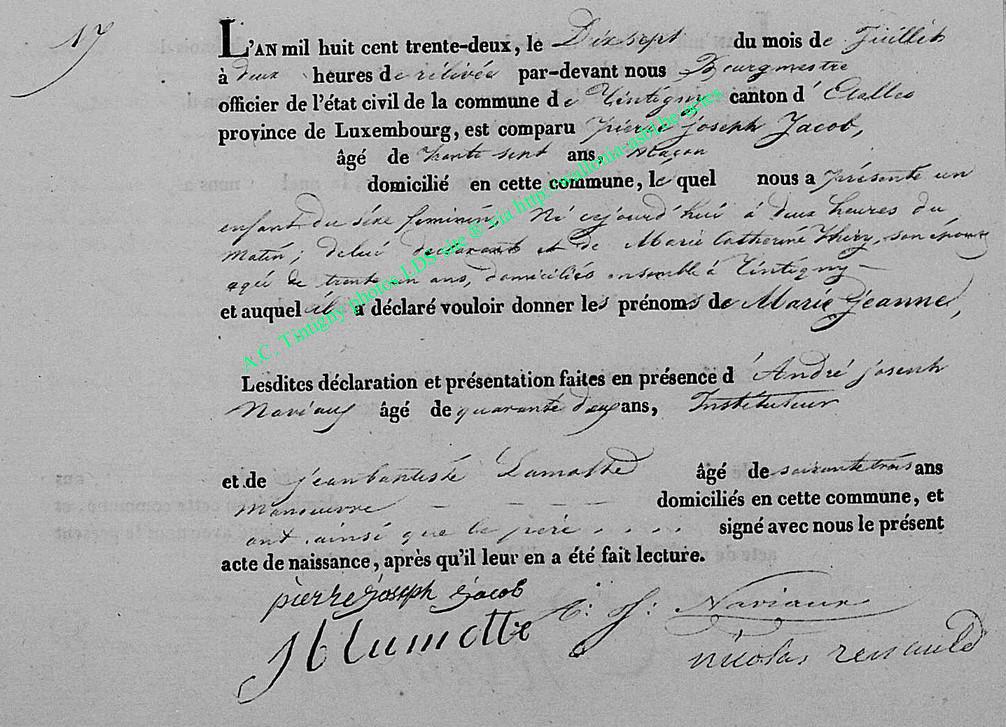 17
L'AN mil huit cent trente-deux, le Dix sept du mois de Juillet
à deux heures de rélivée par-devant nous Bourgmestre
officier de l'état civil de la commune de Tintigny canton d' Etalle
province de Luxembourg, est comparu pierre joseph Jacob,
âgé de trente sept ans, Maçon
domicilié en cette commune, le quel nous a présenté un
enfant du séxe féminin, Né cejourd'hui à deux heures du
Matin; de lui déclarant et de Marie Catherine Thiry, son épouse
agée de trente un ans, domiciliés ensemble à Tintigny
et auquel il a déclaré vouloir donner les prénoms de Marie Jeanne,
Lesdites déclaration et présentation faites en présence d' André joseph
Naviaux âgé de quarante deux ans, Instituteur
et de jean baptiste Lamotte âgé de soixante trois ans
Manoeuvre domiciliés en cette commune, et
ont ainsi que le pere signé avec nous le présent
acte de naissance, après qu'il leur en a été fait lecture.
pierre joseph Jacob
A: J: Naviaux
J b lamotte
nicolas renauld
A.C. Tintigny photos LDS site ® via